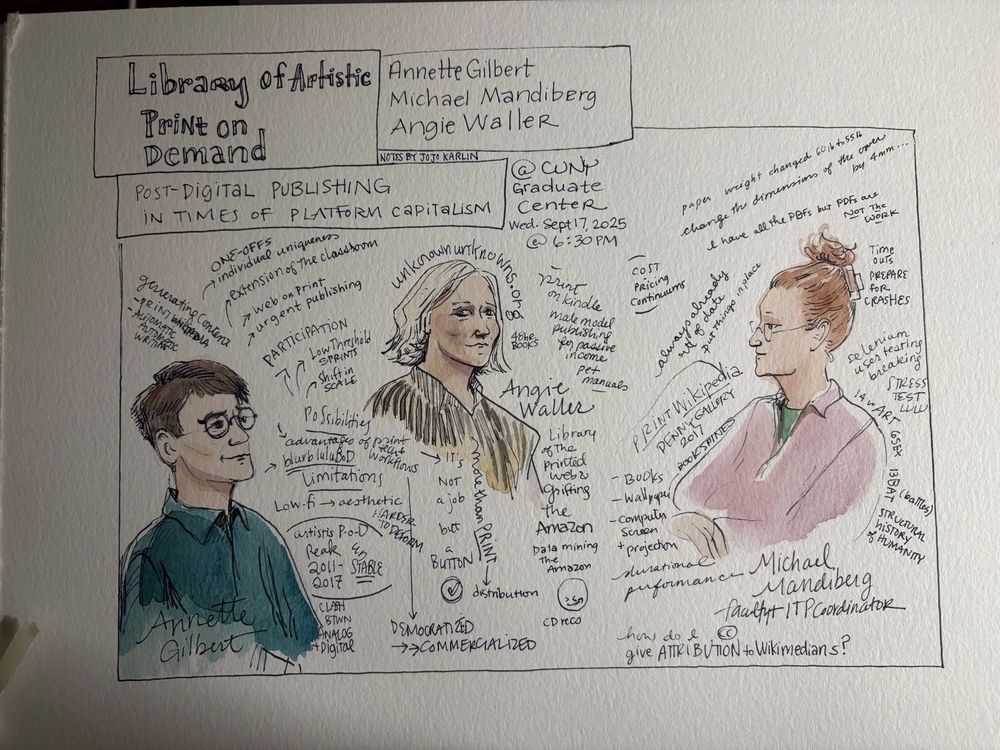 Library of Artistic
Print on
Demand
Annette Gilbert
Michael Mandiberg
Angie Waller
NOTES BY JOJO KARLIN
POST-DIGITAL PUBLISHING
IN TIMES OF PLATFORM CAPITALISM
@ CUNY
Graduate
Center
Wed. Sept 17, 2025
@ 6:30 PM
ONE-OFFS
individual uniqueness
extension of the classroom
web on print
urgent publishing
generating content
- PRINT WIKIPEDIA
- AUTOMATIC
WRITING
PARTICIPATION
Low Threshold
SPRINTS
Shift in
SCALE
Possibilities
advantages of print
workflows
blurb lulu BoD
Limitations
Low-fi → aesthetic
HARDER
TO
artistic P-o-D
Peak
2011-
2017
STABLE
CLASH
BTWN
ANALOG
+ Digital
Annette
Gilbert
unknownunknowns.org
48HRS
BOOKS
Angie
Waller
print
on kindle
male model
publishing
for passive
income
pet
manuals
IT'S
NOT
a job
but
a
BUTTON
more than PRINT
distribution
DEMOCRATIZED
→→ COMMERCIALIZED
Library
of the
Printed
web &
grifting
The
Amazon
Data mining
the
Amazon
CD reco
COST
Pricing
Continuums
paper weight changed 60 lb to 55 lb
change the dimensions of the cover
by 4mm...
I have all the PDFs but PDFs are
NOT THE
WORK
always already
out of date
put things in place
Time
outs
PREPARE
FOR
CRASHES
selenium
user testing
breaking
STRESS
TEST
LULU
PRINT Wikipedia
DENNY GALLERY
2017
BOOKSPINES
- BOOKS
- Wallpaper
- computer
screen
+ projection
durational
performance
ART
(battles)
STRUCTURAL
HISTORY
of HUMANITY
Michael
Mandiberg
faculty + ITP Coordinator
how do I ©
give ATTRIBUTION to Wikimedians?